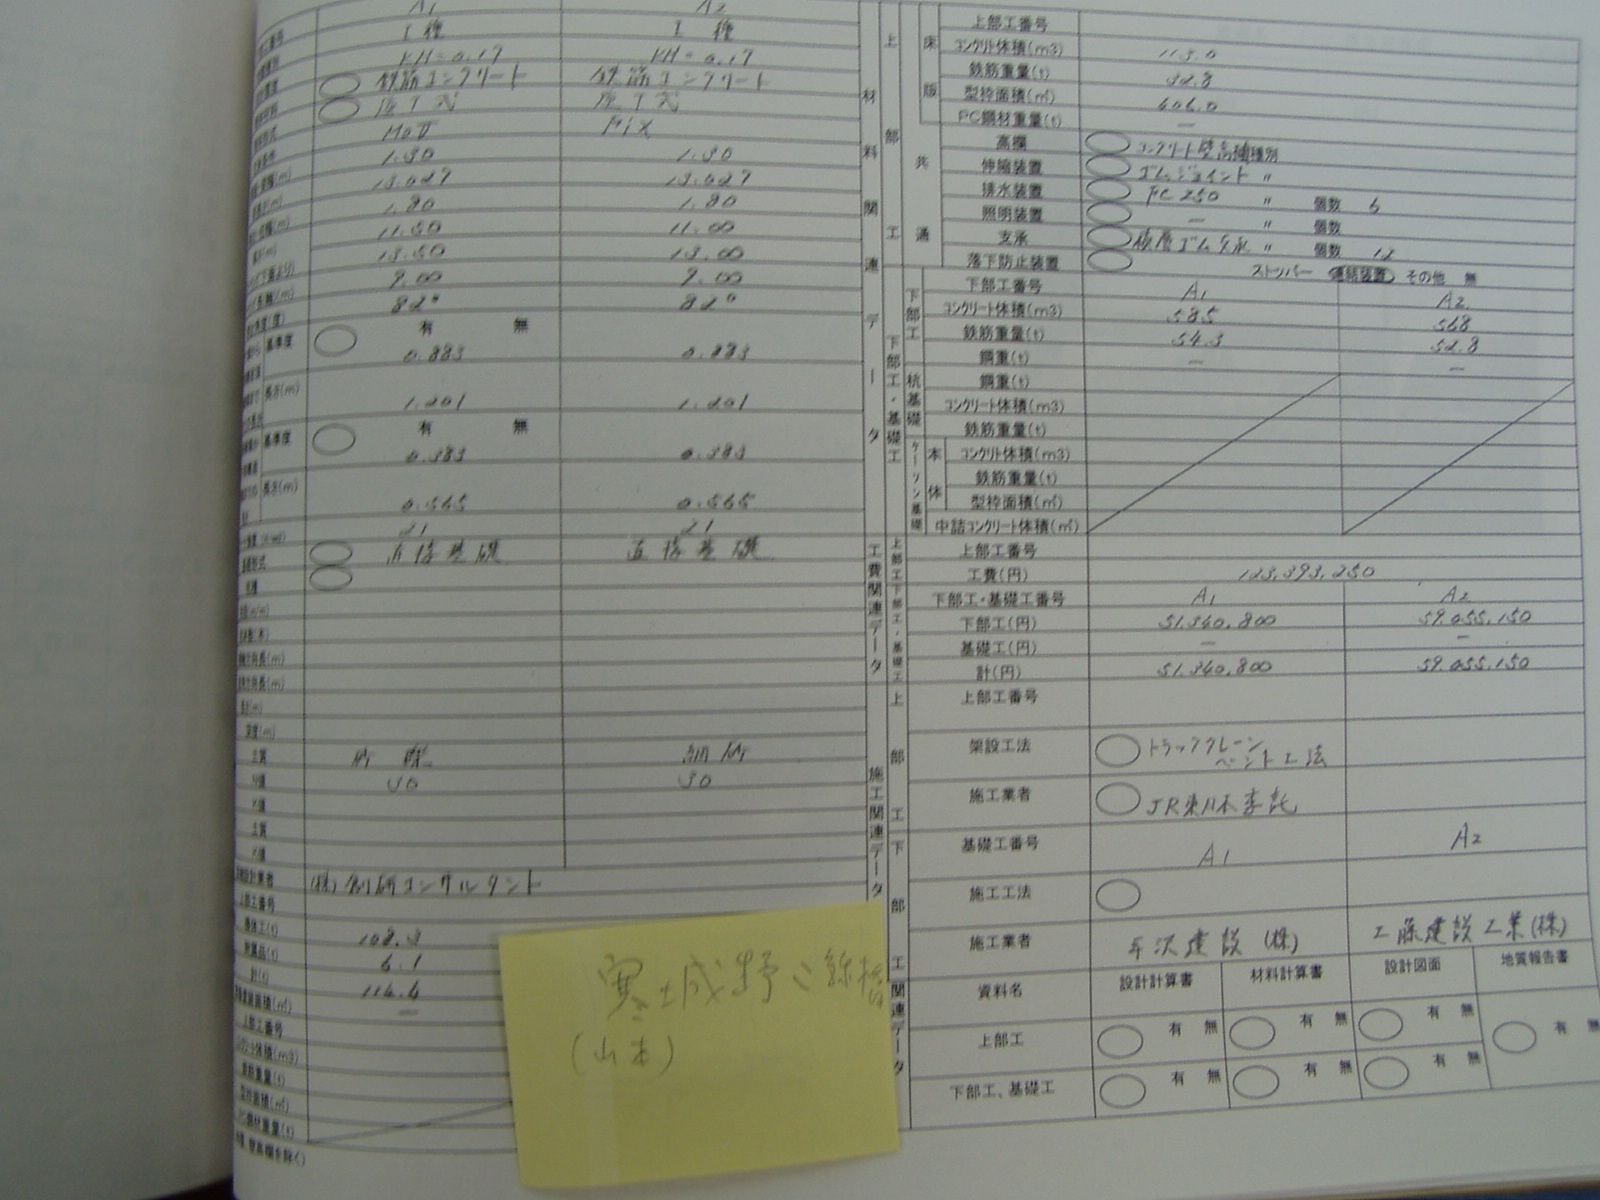 A1 A2
I種 I種
KH=0.17 KH=0.17
鉄筋コンクリート 鉄筋コンクリート
逆T式 逆T式
Mov Fix
1.30 1.30
13.027 13.027
1.80 1.80
11.50 11.00
13.50 13.00
9.00 9.00
82° 82°
有 無
基準度 0.883 0.883
長さ(m) 1.201 1.201
有 無
基準度 0.383 0.383
長さ(m) 0.565 0.565
21 21
直接基礎 直接基礎
土質 砂礫 細砂
N値 30 30
土質
(株)創研コンサルタント
上部工番号
108.3
6.1
計(t) 114.4
—
上部工番号
材料関連データ
上部工
床版
上部工番号
コンクリト体積(m3) 113.0
鉄筋重量(t) 32.8
型枠面積(㎡) 606.0
PC鋼材重量(t) —
共通
高欄 コンクリート壁高欄 種別
伸縮装置 ゴムジョイント 〃
排水装置 FC 250 〃 個数 6
照明装置 — 〃 個数
支承 積層ゴム支承 〃 個数 12
落下防止装置 ストッパー 連結装置 その他 無
下部工・基礎工
下部工
下部工番号 A1 A2
コンクリート体積(m3) 585 568
鉄筋重量(t) 54.3 52.8
鋼重(t) — —
杭基礎
鋼重(t)
コンクリート体積(m3)
鉄筋重量(t)
ケーソン基礎
本体
コンクリト体積(m3)
鉄筋重量(t)
型枠面積(㎡)
中詰コンクリート体積(㎡)
工費関連データ
上部工
上部工番号
工費(円) 123,393,250
下部工・基礎工
下部工・基礎工番号 A1 A2
下部工(円) 51,340,800 59,055,150
基礎工(円) — —
計(円) 51,340,800 59,055,150
施工関連データ
上部工
上部工番号
架設工法 トラッククレーン
ベント工法
施工業者 JR東日本委託
下部工
基礎工番号 A1 A2
施工工法
施工業者 平沢建設(株) 工藤建設工業(株)
関連データ
資料名 設計計算書 材料計算書 設計図面 地質報告書
上部工 有 無 有 無 有 無 有 無
下部工、基礎工 有 無 有 無 有 無
寒土成野こ線橋
(山本)